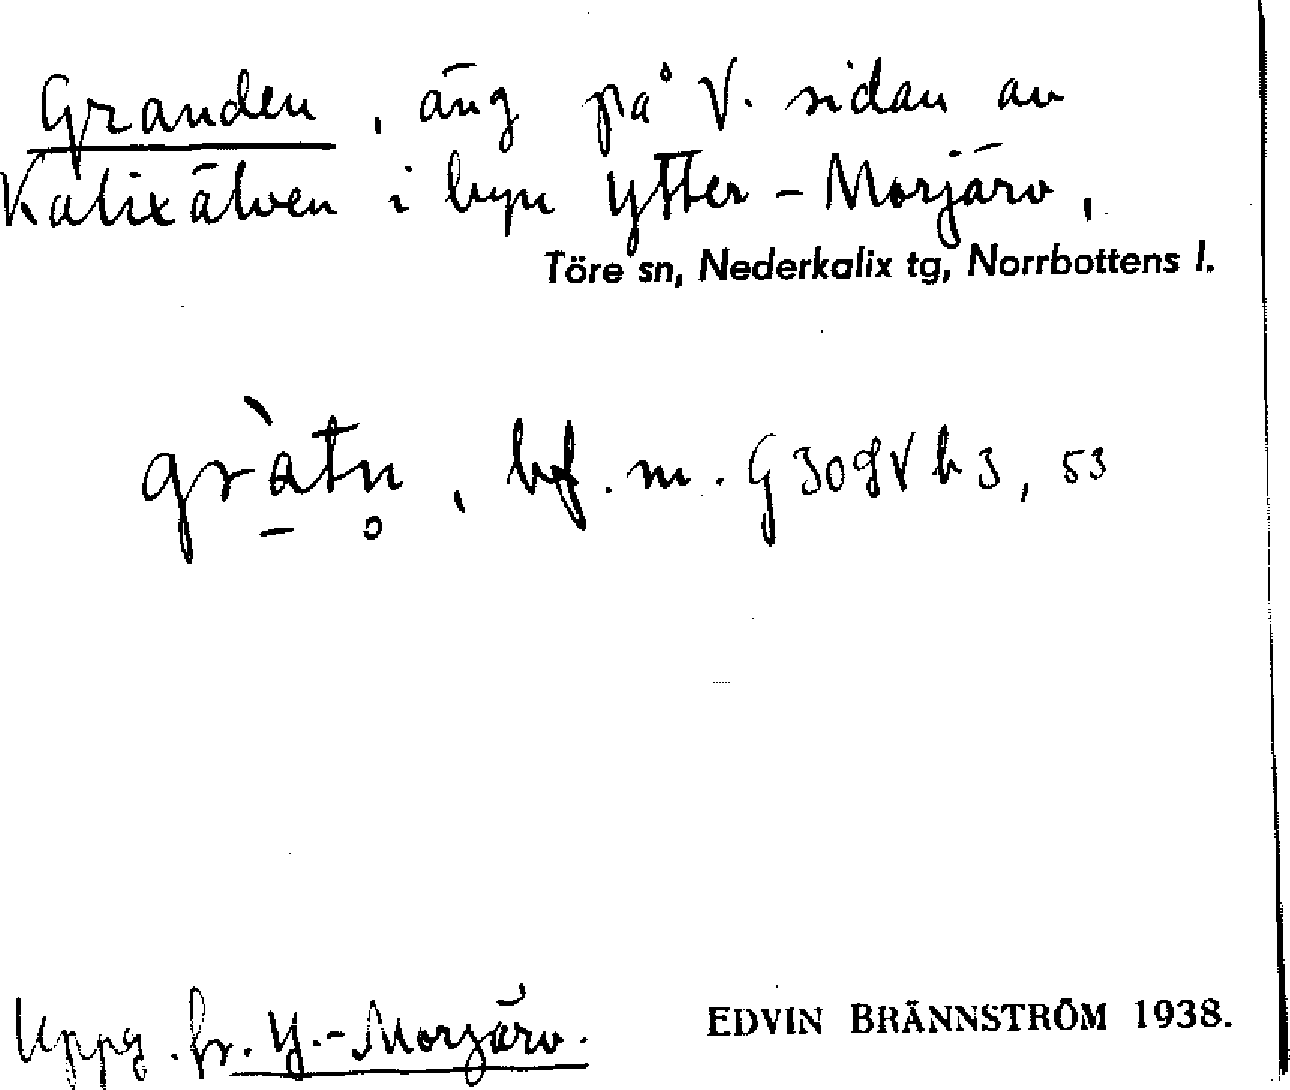 Granden, äng på V. sidan av
Kalixälven i byn Ytter-Morjärv,
Töre sn, Nederkalix tg, Norrbottens l.
gràtn̥, bf. m.
Uppg. fr. Y.-Morjärv.
EDVIN BRÄNNSTRÖM 1938.